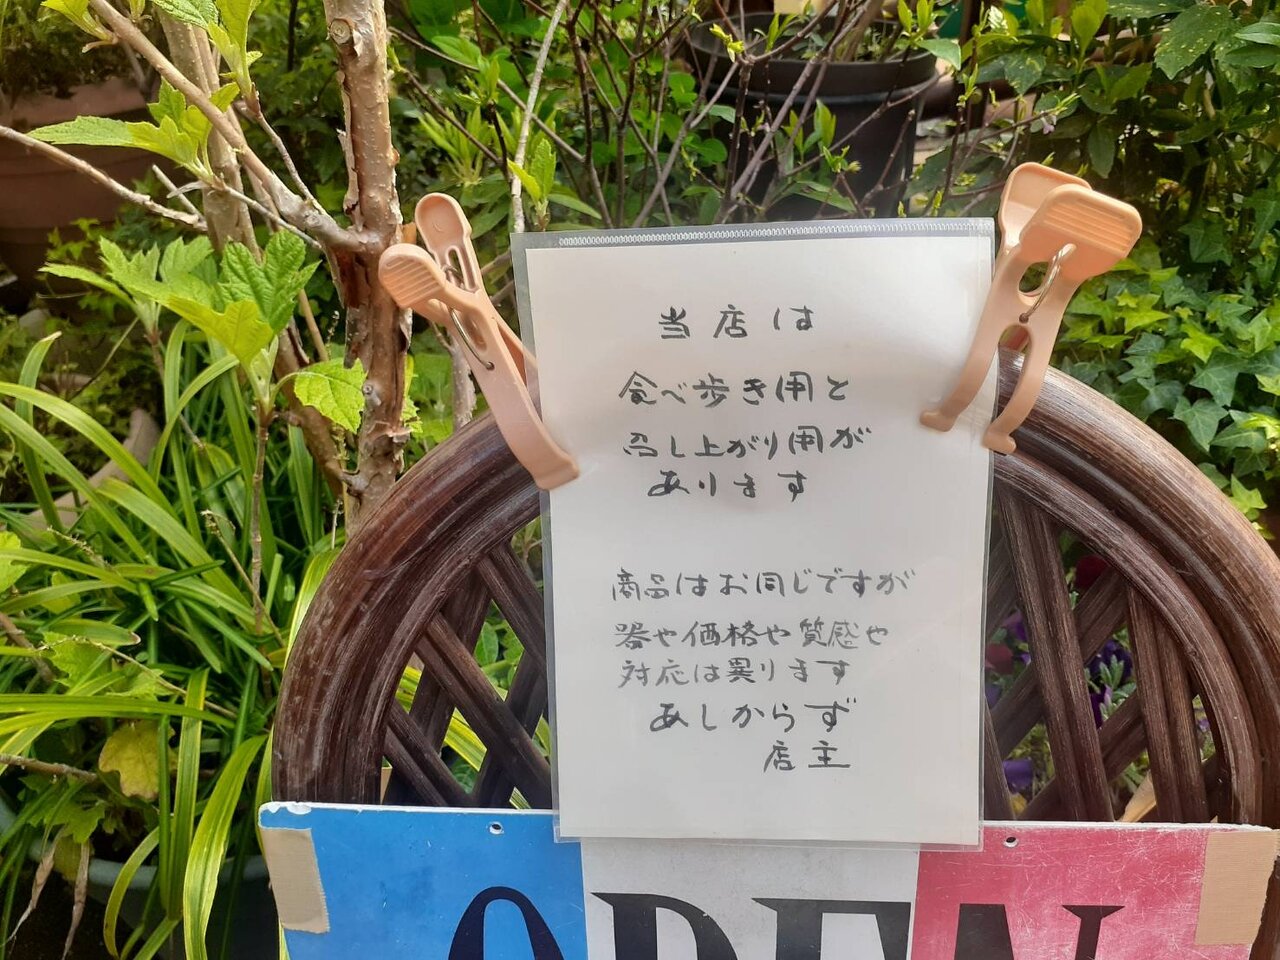 当店は
食べ歩き用と
召し上がり用が
あります
商品はお同じですが
器や価格や質感や
対応は異ります
あしからず
店主
OPEN